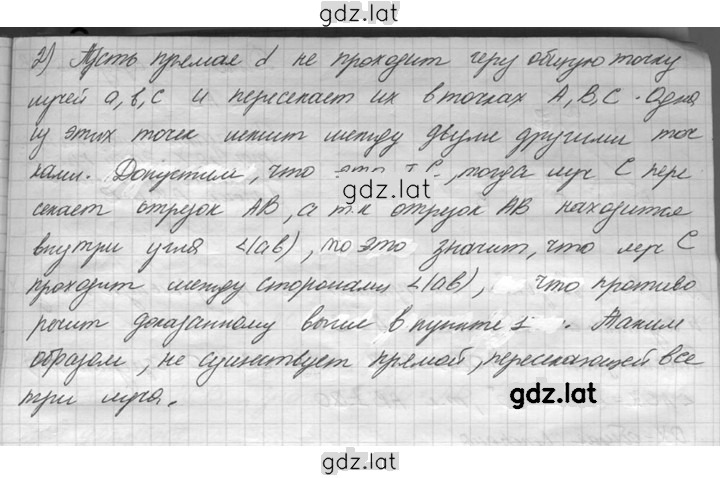 gdz.lat
2) Пусть прямая d не проходит через общую точку
лучей a, b, c и пересекает их в точках A, B, C. Одна
из этих точек лежит между двумя другими точ
ками. Допустим, что это т C, тогда луч C пере
gdz.lat
секает отрезок AB, а т.к отрезок AB находится
внутри угла ∠(ab), то это значит, что луч C
проходит между сторонами ∠(ab), что противо
речит доказанному выше в пункте 1. Таким
образом, не существует прямой, пересекающей все
три луча.
gdz.lat
gdz.lat